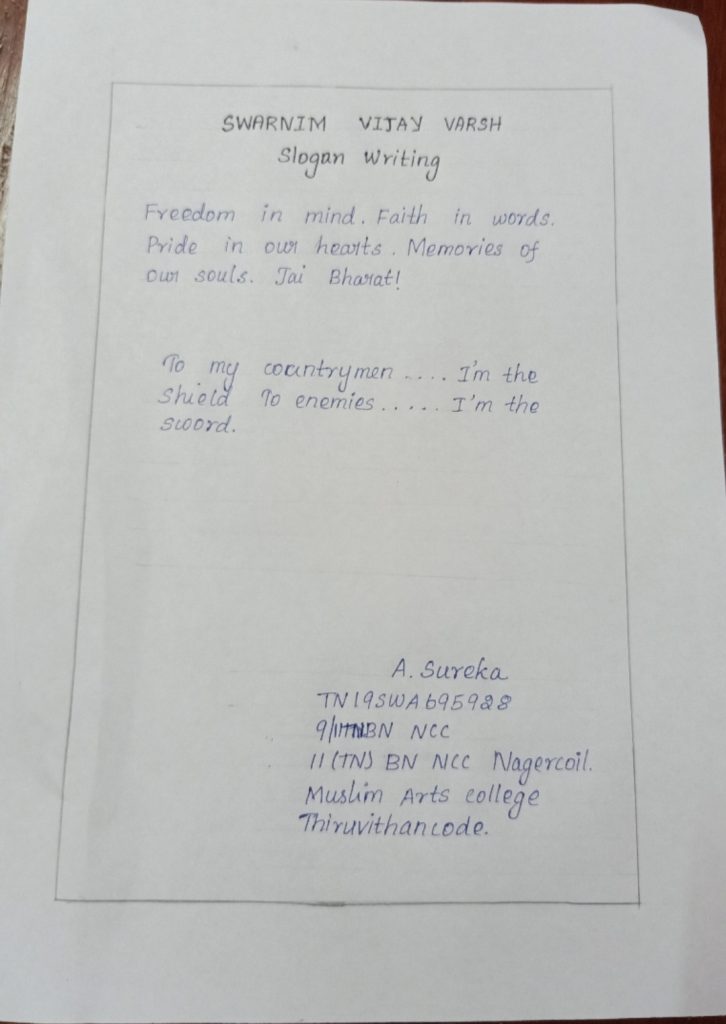 SWARNIM VIJAY VARSH
Slogan Writing
Freedom in mind. Faith in words.
Pride in our hearts. Memories of
our souls. Jai Bharat!
To my countrymen .... I'm the
Shield To enemies ..... I'm the
sword.
A. Sureka
TN19SWA695928
9/11TNBN NCC
11 (TN) BN NCC Nagercoil.
Muslim Arts college
Thiruvithancode.